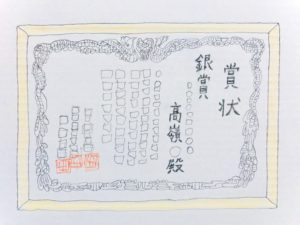 賞状
銀賞
高嶺○殿